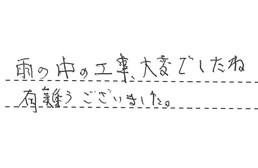 雨の中の工事、大変でしたね
有難うございました。